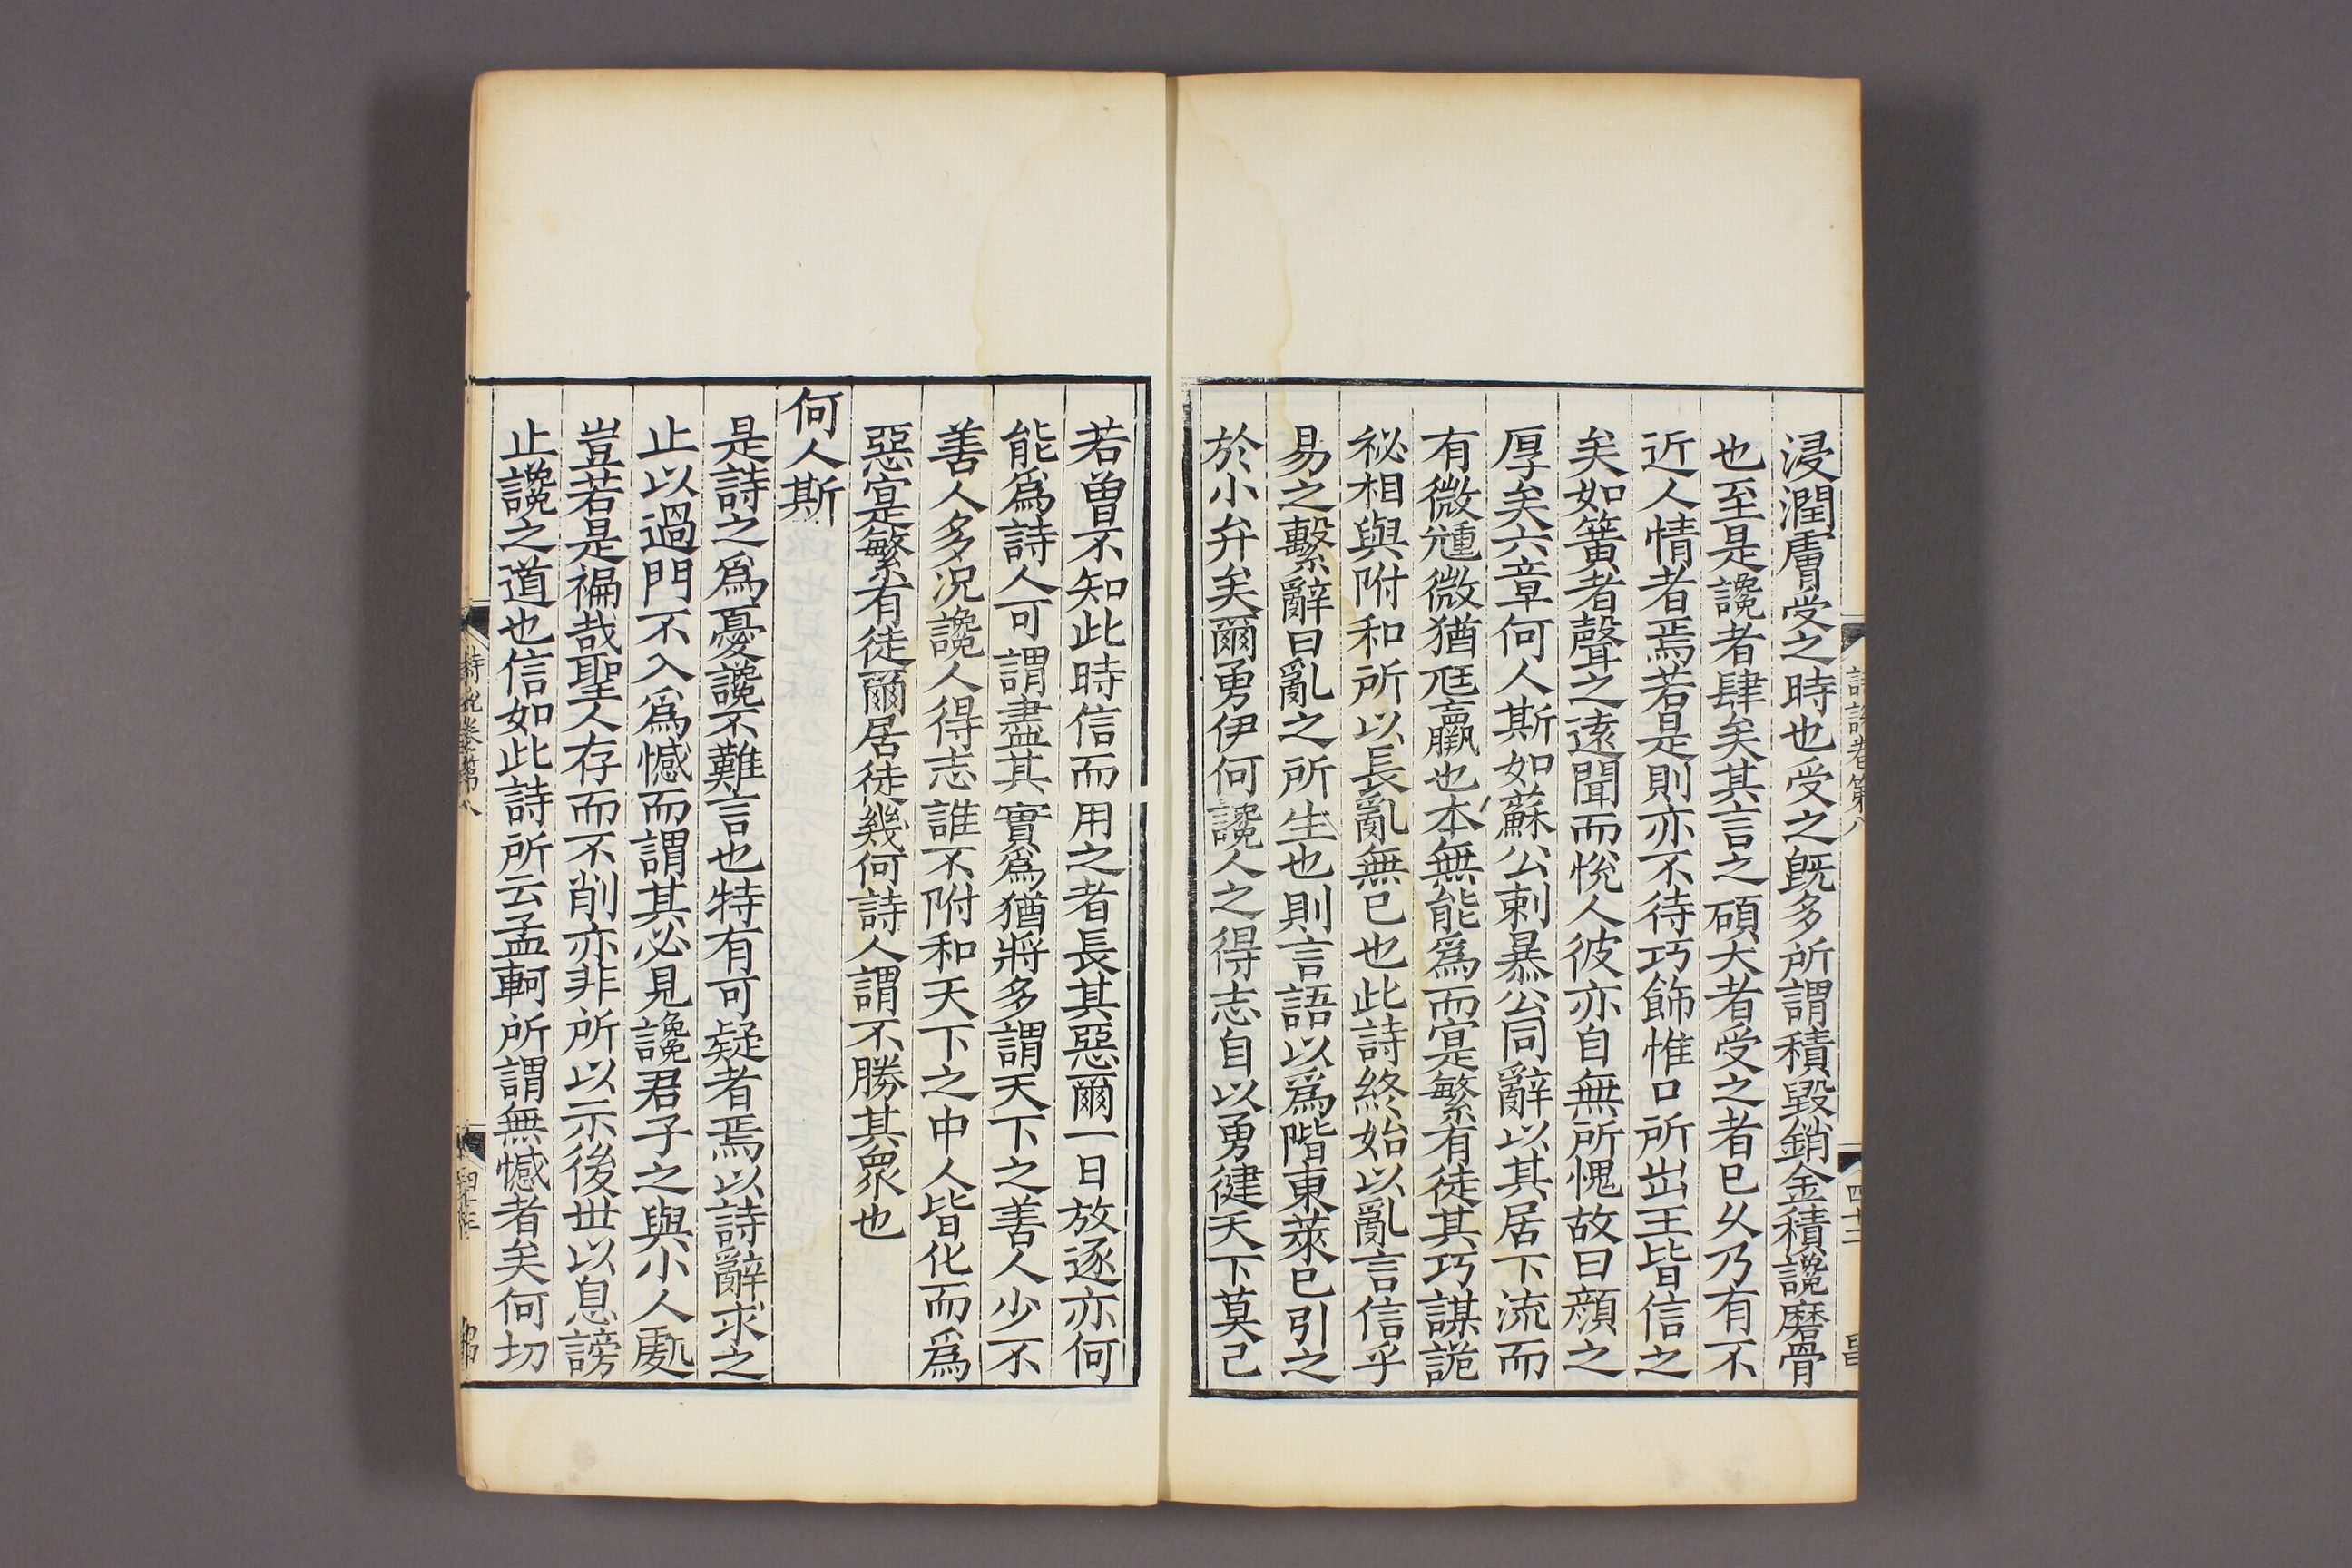 詩說卷第八 四十二
浸潤膚受之時也受之既多所謂積毀銷金積讒磨骨
也至是讒者肆矣其言之碩大者受之者已久乃有不
近人情者焉若是則亦不待巧飾惟口所出王皆信之
矣如簧者聲之遠聞而悅人彼亦自無所愧故曰顔之
厚矣六章何人斯如蘇公刺暴公同辭以其居下流而
有微㣫微猶尫羸也本無能爲而寔繁有徒其巧謀詭
祕相與附和所以長亂無已也此詩終始以亂言信乎
易之繫辭曰亂之所生也則言語以爲階東萊已引之
於小弁矣爾勇伊何讒人之得志自以勇健天下莫己
若曾不知此時信而用之者長其惡爾一日放逐亦何
能爲詩人可謂盡其實爲猶將多謂天下之善人少不
善人多況讒人得志誰不附和天下之中人皆化而爲
惡寔繁有徒爾居徒幾何詩人謂不勝其衆也
何人斯
是詩之爲憂讒不難言也特有可疑者焉以詩辭求之
止以過門不入爲憾而謂其必見讒君子之與小人處
豈若是褊哉聖人存而不削亦非所以示後世以息謗
止讒之道也信如此詩所云孟軻所謂無憾者矣何切
詩說卷第八 四十三